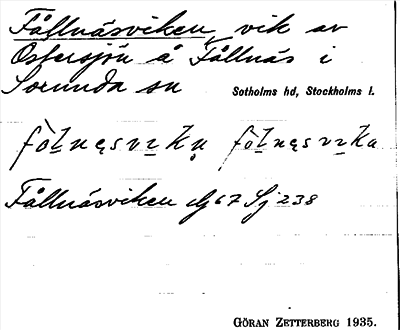 Fållnäsviken, vik av
Östersjön å Fållnäs i
Sorunda sn
Sotholms hd, Stockholms l.
Fållnäsviken dg 67 Sj 238
GÖRAN ZETTERBERG 1935.